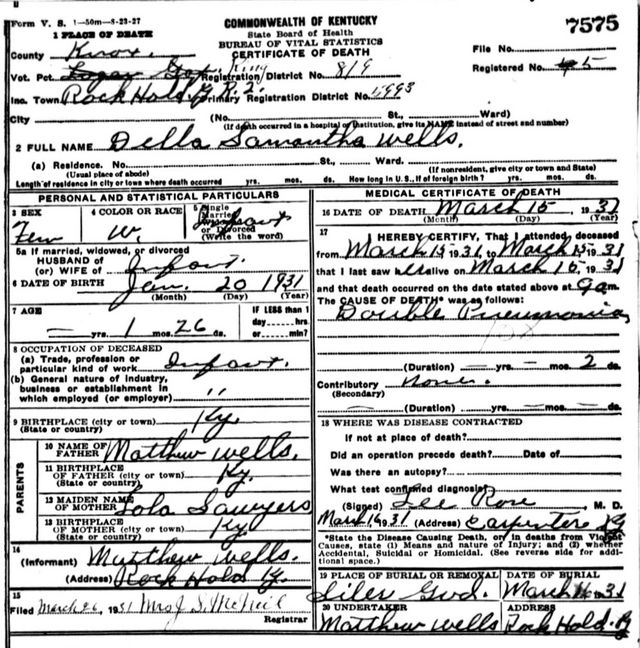 Form V. S. 1—50m—8-23-27
1 PLACE OF DEATH
COMMONWEALTH OF KENTUCKY
State Board of Health
BUREAU OF VITAL STATISTICS
CERTIFICATE OF DEATH
7575
County Knox.
File No.
Vot. Pct. King Registration District No. 819
Registered No. 45
Inc. Town Rock Hold, Primary Registration District No. 4993
City (No. St., Ward)
(If death occurred in a hospital or institution, give its NAME instead of street and number)
2 FULL NAME Della Samantha Wells.
(a) Residence. No. St., Ward.
(Usual place of abode) (If nonresident, give city or town and State)
Length of residence in city or town where death occurred yrs. mos. ds. How long in U. S., if of foreign birth? yrs. mos. ds.
PERSONAL AND STATISTICAL PARTICULARS
3 SEX Fem
4 COLOR OR RACE W.
5 Single Married Widowed or Divorced (Write the word) Infant
5a If married, widowed, or divorced
HUSBAND OF
(or) WIFE of Infant.
6 DATE OF BIRTH Jan. 20 1931
(Month) (Day) (Year)
7 AGE — yrs. 1 mos. 26 ds.
IF LESS than 1 day hrs. or min.?
8 OCCUPATION OF DECEASED
(a) Trade, profession or particular kind of work Infant.
(b) General nature of industry, business or establishment in which employed (or employer) "
9 BIRTHPLACE (city or town) Ky.
(State or country)
PARENTS
10 NAME OF FATHER Matthew Wells.
11 BIRTHPLACE OF FATHER (city or town) Ky.
(State or country)
12 MAIDEN NAME OF MOTHER Lola Sawyers
13 BIRTHPLACE OF MOTHER (city or town) Ky.
(State or country)
14 (Informant) Matthew Wells.
(Address) Rock Hold Ky.
15 Filed March 26, 1931 Mrs J. S. McNeil
Registrar
MEDICAL CERTIFICATE OF DEATH
16 DATE OF DEATH March 15, 1931
(Month) (Day) (Year)
17 I HEREBY CERTIFY, That I attended deceased
from March 15 1931, to March 15 1931
that I last saw alive on March 15 1931
and that death occurred on the date stated above at 9 a m.
The CAUSE OF DEATH* was as follows:
Double Pneumonia,
(Duration) — yrs. — mos. 2 ds.
Contributory None.
(Secondary)
(Duration) — yrs. — mos. — ds.
18 WHERE WAS DISEASE CONTRACTED
If not at place of death?
Did an operation precede death? Date of
Was there an autopsy?
What test confirmed diagnosis?
(Signed) Lee Rose M. D.
March 16 31 (Address) Carpenter Ky
*State the Disease Causing Death, or, in deaths from Violent Causes, state (1) Means and nature of Injury; and (2) whether Accidental, Suicidal or Homicidal. (See reverse side for additional space.)
19 PLACE OF BURIAL OR REMOVAL Siler Gvd.
DATE OF BURIAL March 16 31
20 UNDERTAKER Matthew Wells
ADDRESS Rock Hold. Ky